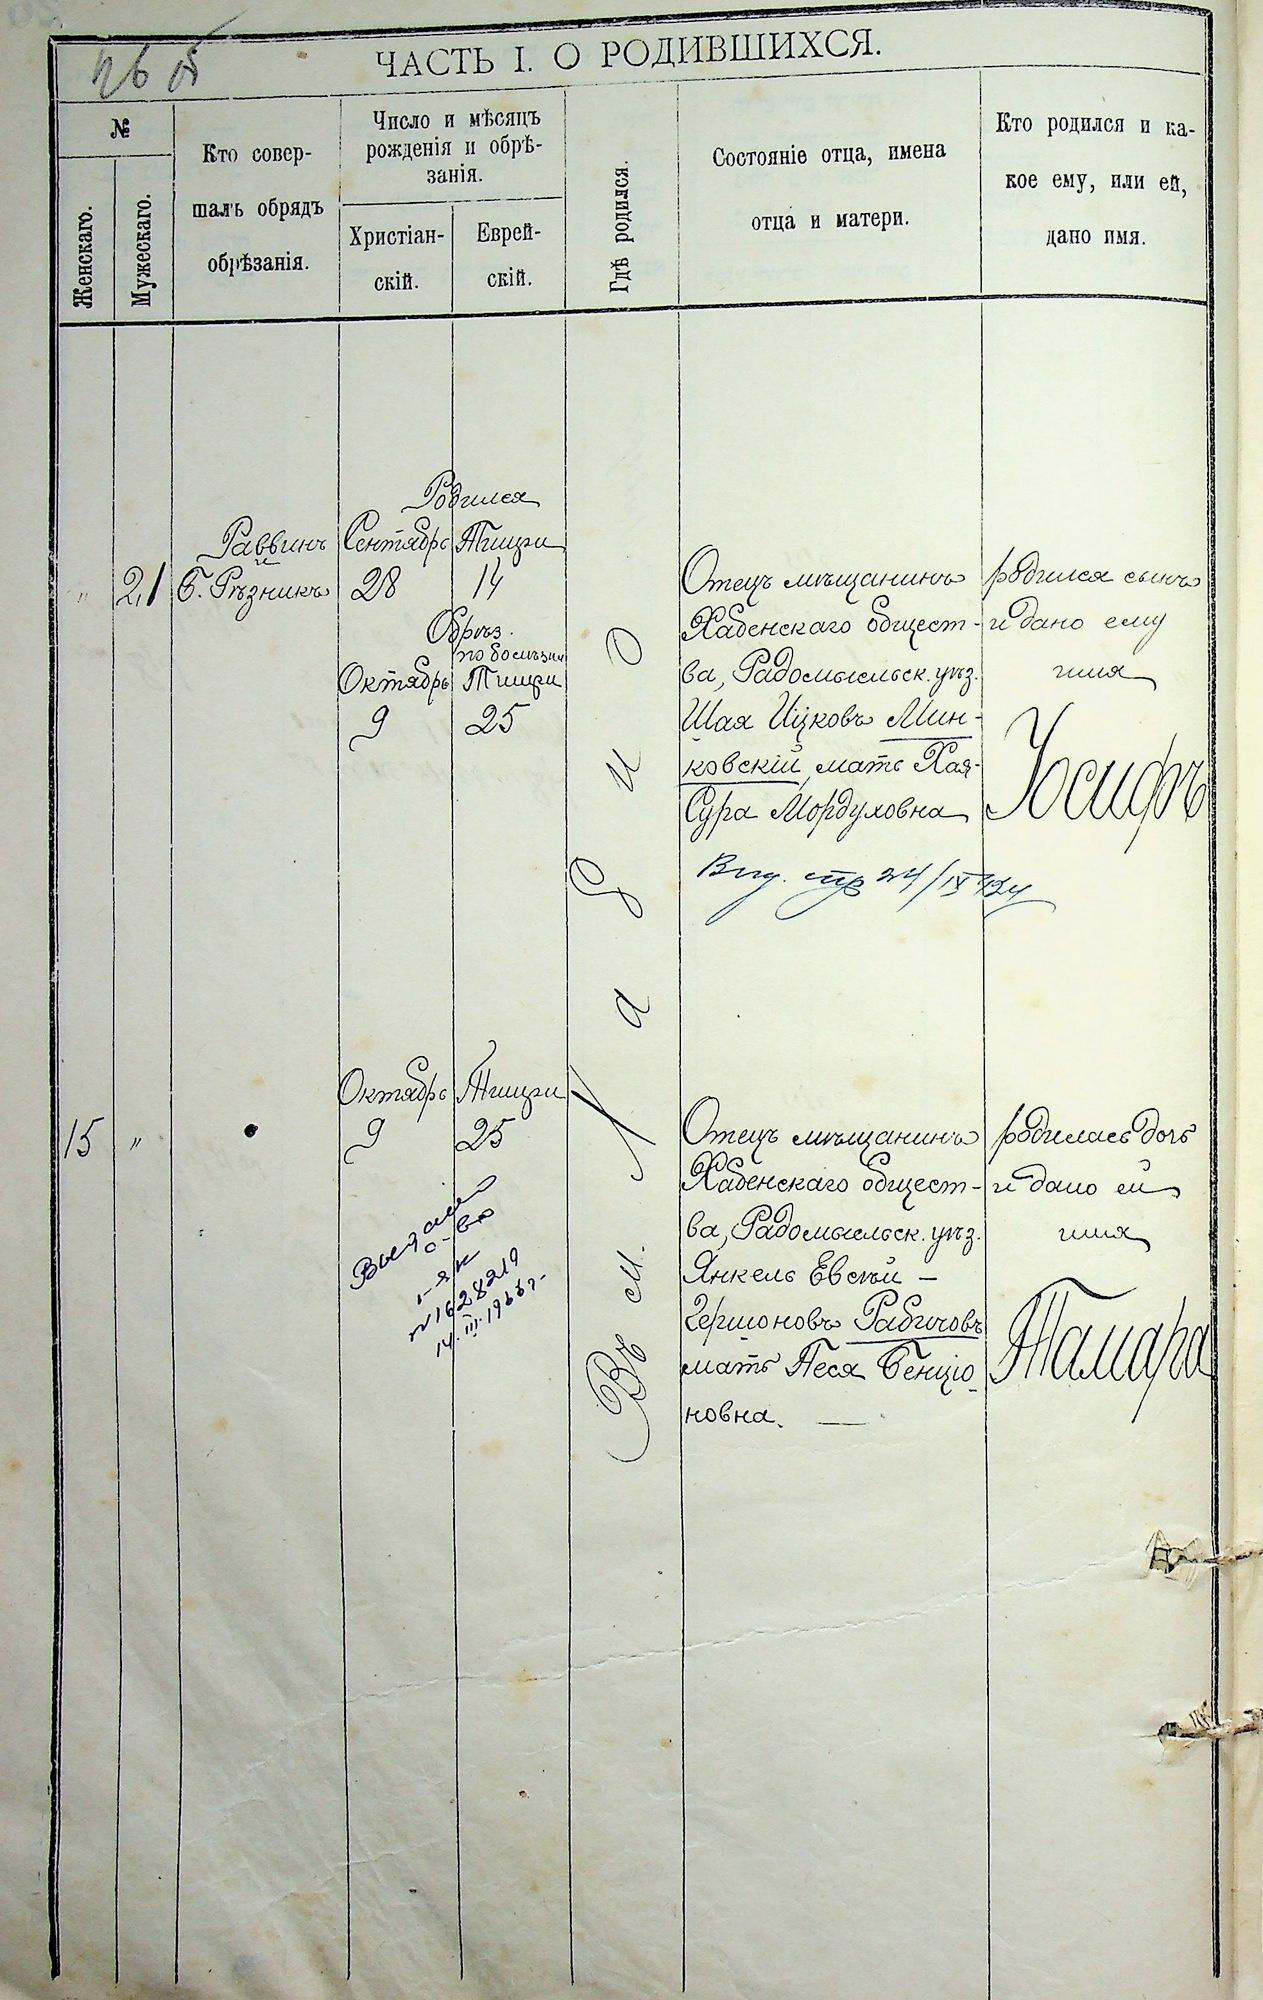 ЧАСТЬ I. О РОДИВШИХСЯ.
№
Женскаго.
Мужескаго.
Кто совер-
шалъ обрядъ
обрѣзанія.
Число и мѣсяцъ
рожденія и обрѣ-
занія.
Христіан-
скій.
Еврей-
скій.
Гдѣ родился.
Состояніе отца, имена
отца и матери.
Кто родился и ка-
кое ему, или ей,
дано имя.
"
21
Раввинъ
Б. Рѣзникъ
Родился
Сентябрь Тишри
28 14
Обрѣз.
по болѣзни
Октябрь Тишри
9 25
Въ м. Хабно
Отецъ мѣщанинъ
Хабенскаго общест-
ва, Радомысльск. уѣз.
Шая Ицковъ Мин-
ковскій, мать Хая-
Сура Мордуховна
родился сынъ
и дано ему
имя
Іосифъ
24/IX
15
"
Октябрь Тишри
9 25
о-во
№ 1628219
14.III.1966г.
Отецъ мѣщанинъ
Хабенскаго общест-
ва, Радомысльск. уѣз.
Янкель Евсѣй –
Гершоновъ Рабичовъ
мать Песя Бенціо-
новна. —
родилась дочь
и дано ей
имя
Тамара